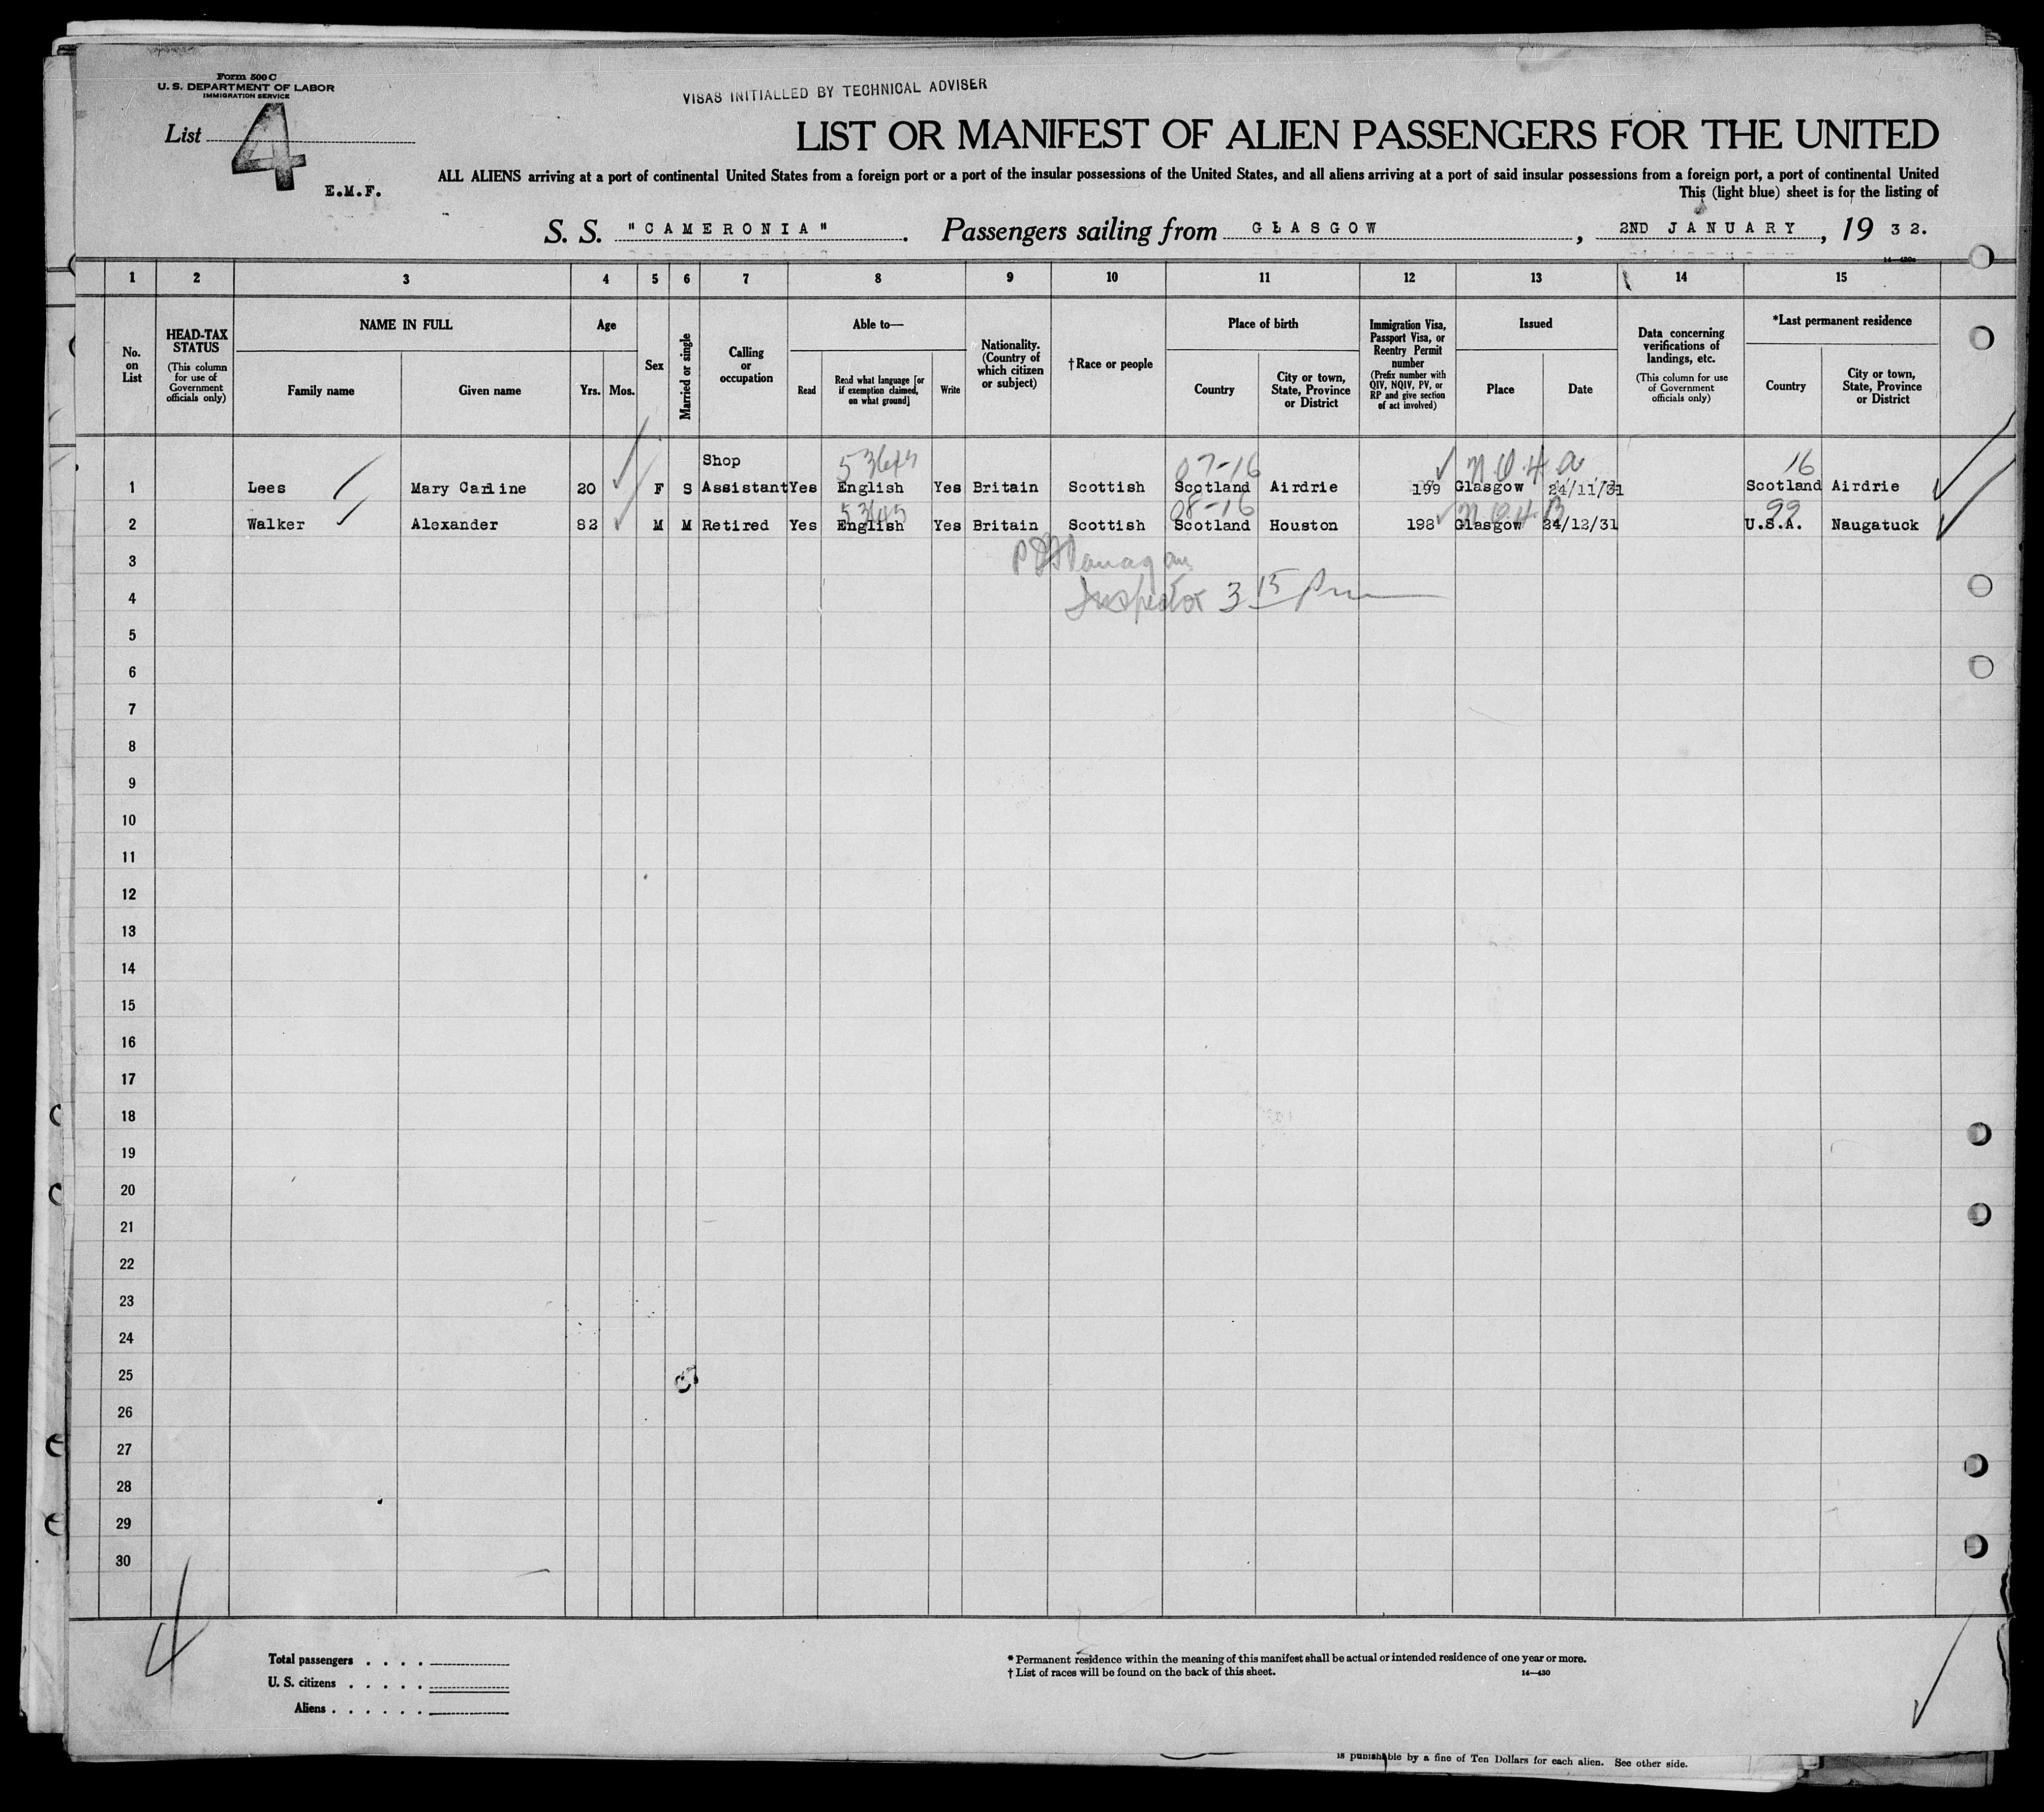 Form 500 C
U. S. DEPARTMENT OF LABOR
IMMIGRATION SERVICE
VISAS INITIALLED BY TECHNICAL ADVISER
List 4
LIST OR MANIFEST OF ALIEN PASSENGERS FOR THE UNITED
E.M.F.
ALL ALIENS arriving at a port of continental United States from a foreign port or a port of the insular possessions of the United States, and all aliens arriving at a port of said insular possessions from a foreign port, a port of continental United
This (light blue) sheet is for the listing of
S. S. "CAMERONIA". Passengers sailing from GLASGOW, 2ND JANUARY, 1932.
1 2 3 4 5 6 7 8 9 10 11 12 13 14 15
No. on List
HEAD-TAX STATUS
(This column for use of Government officials only)
NAME IN FULL
Family name
Given name
Age
Yrs. Mos.
Sex
Married or single
Calling or occupation
Able to—
Read
Read what language [or if exemption claimed, on what ground]
Write
Nationality. (Country of which citizen or subject)
†Race or people
Place of birth
Country
City or town, State, Province or District
Immigration Visa, Passport Visa, or Reentry Permit number
(Prefix number with QIV, NQIV, PV, or RP and give section of act involved)
Issued
Place
Date
Data concerning verifications of landings, etc.
(This column for use of Government officials only)
*Last permanent residence
Country
City or town, State, Province or District
07-16 16
1 Lees Mary Carline 20 F S Shop Assistant Yes English Yes Britain Scottish Scotland Airdrie 199 Glasgow 24/11/31 Scotland Airdrie
08-16 99
2 Walker Alexander 82 M M Retired Yes English Yes Britain Scottish Scotland Houston 198 Glasgow 24/12/31 U.S.A. Naugatuck
3
4 Inspector 3 15 Pm
5
6
7
8
9
10
11
12
13
14
15
16
17
18
19
20
21
22
23
24
25
26
27
28
29
30
Total passengers . . . .
U. S. citizens . . . . .
Aliens . . . . . .
* Permanent residence within the meaning of this manifest shall be actual or intended residence of one year or more.
† List of races will be found on the back of this sheet. 14—430
is punishable by a fine of Ten Dollars for each alien. See other side.